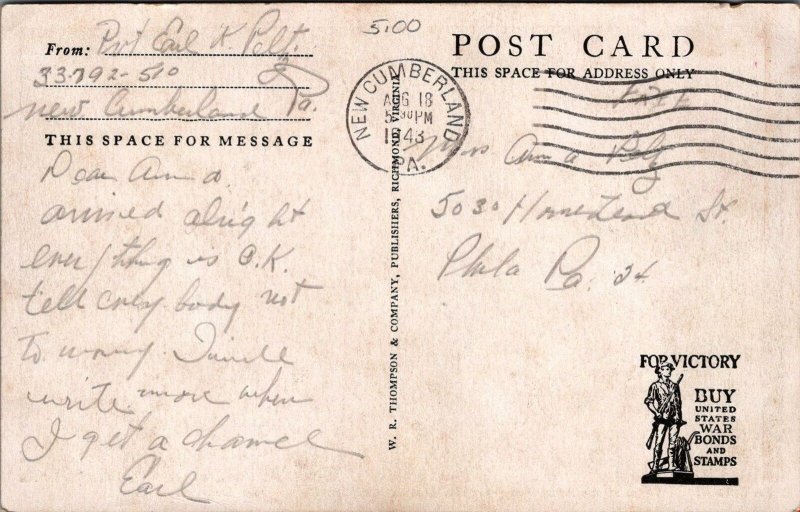 5.00
From: Pvt Earl K Pelz.
33792-510
New Cumberland Pa.
THIS SPACE FOR MESSAGE
Dear Anna.
arrived alright
everything is O.K.
tell every body not
to worry. I will
write more when
I get a chance
Earl
W. R. THOMPSON & COMPANY, PUBLISHERS, RICHMOND, VIRGINIA
NEW CUMBERLAND
AUG 18
5 30 PM
1943
PA.
POST CARD
THIS SPACE FOR ADDRESS ONLY
Miss Anna Pelz
5030 Homestead St.
Phila Pa. 24
FOR VICTORY
BUY
UNITED
STATES
WAR
BONDS
AND
STAMPS